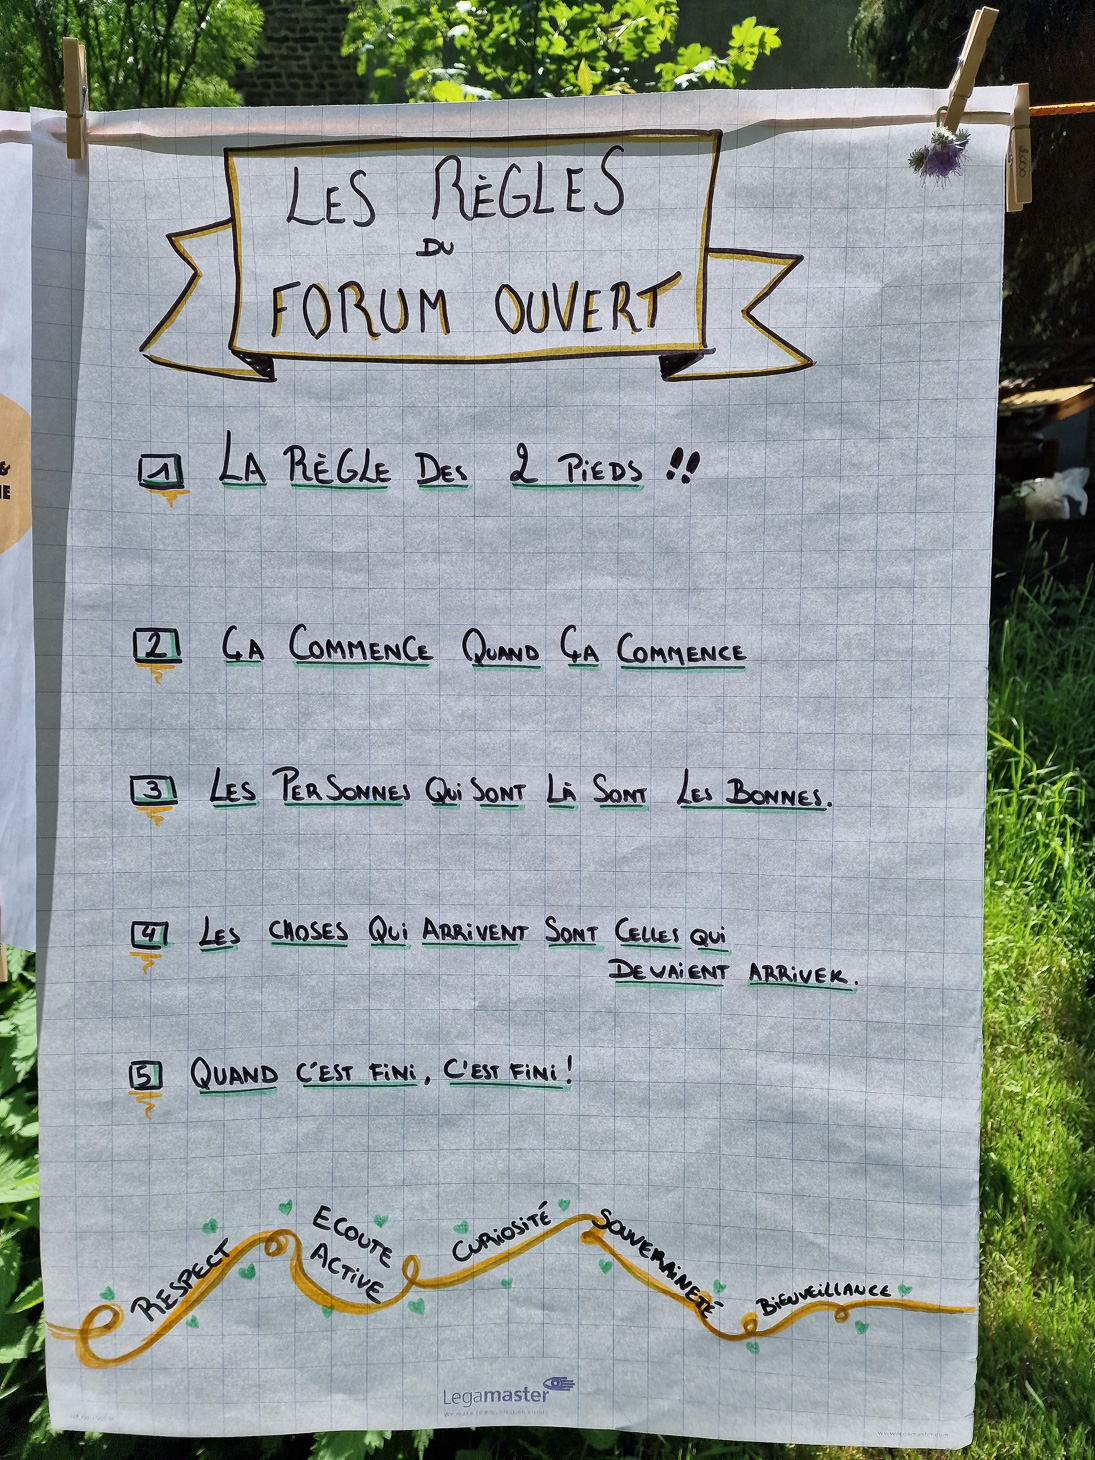 LES RÈGLES
DU
FORUM OUVERT
1 LA RÈGLE DES 2 PIEDS !!
2 ÇA COMMENCE QUAND ÇA COMMENCE
3 LES PERSONNES QUI SONT LÀ SONT LES BONNES.
4 LES CHOSES QUI ARRIVENT SONT CELLES QUI
DEVAIENT ARRIVER.
5 QUAND C'EST FINI, C'EST FINI !
RESPECT
ECOUTE
ACTIVE
CURIOSITÉ
SOUVERAINETÉ
BIENVEILLANCE
Legamaster